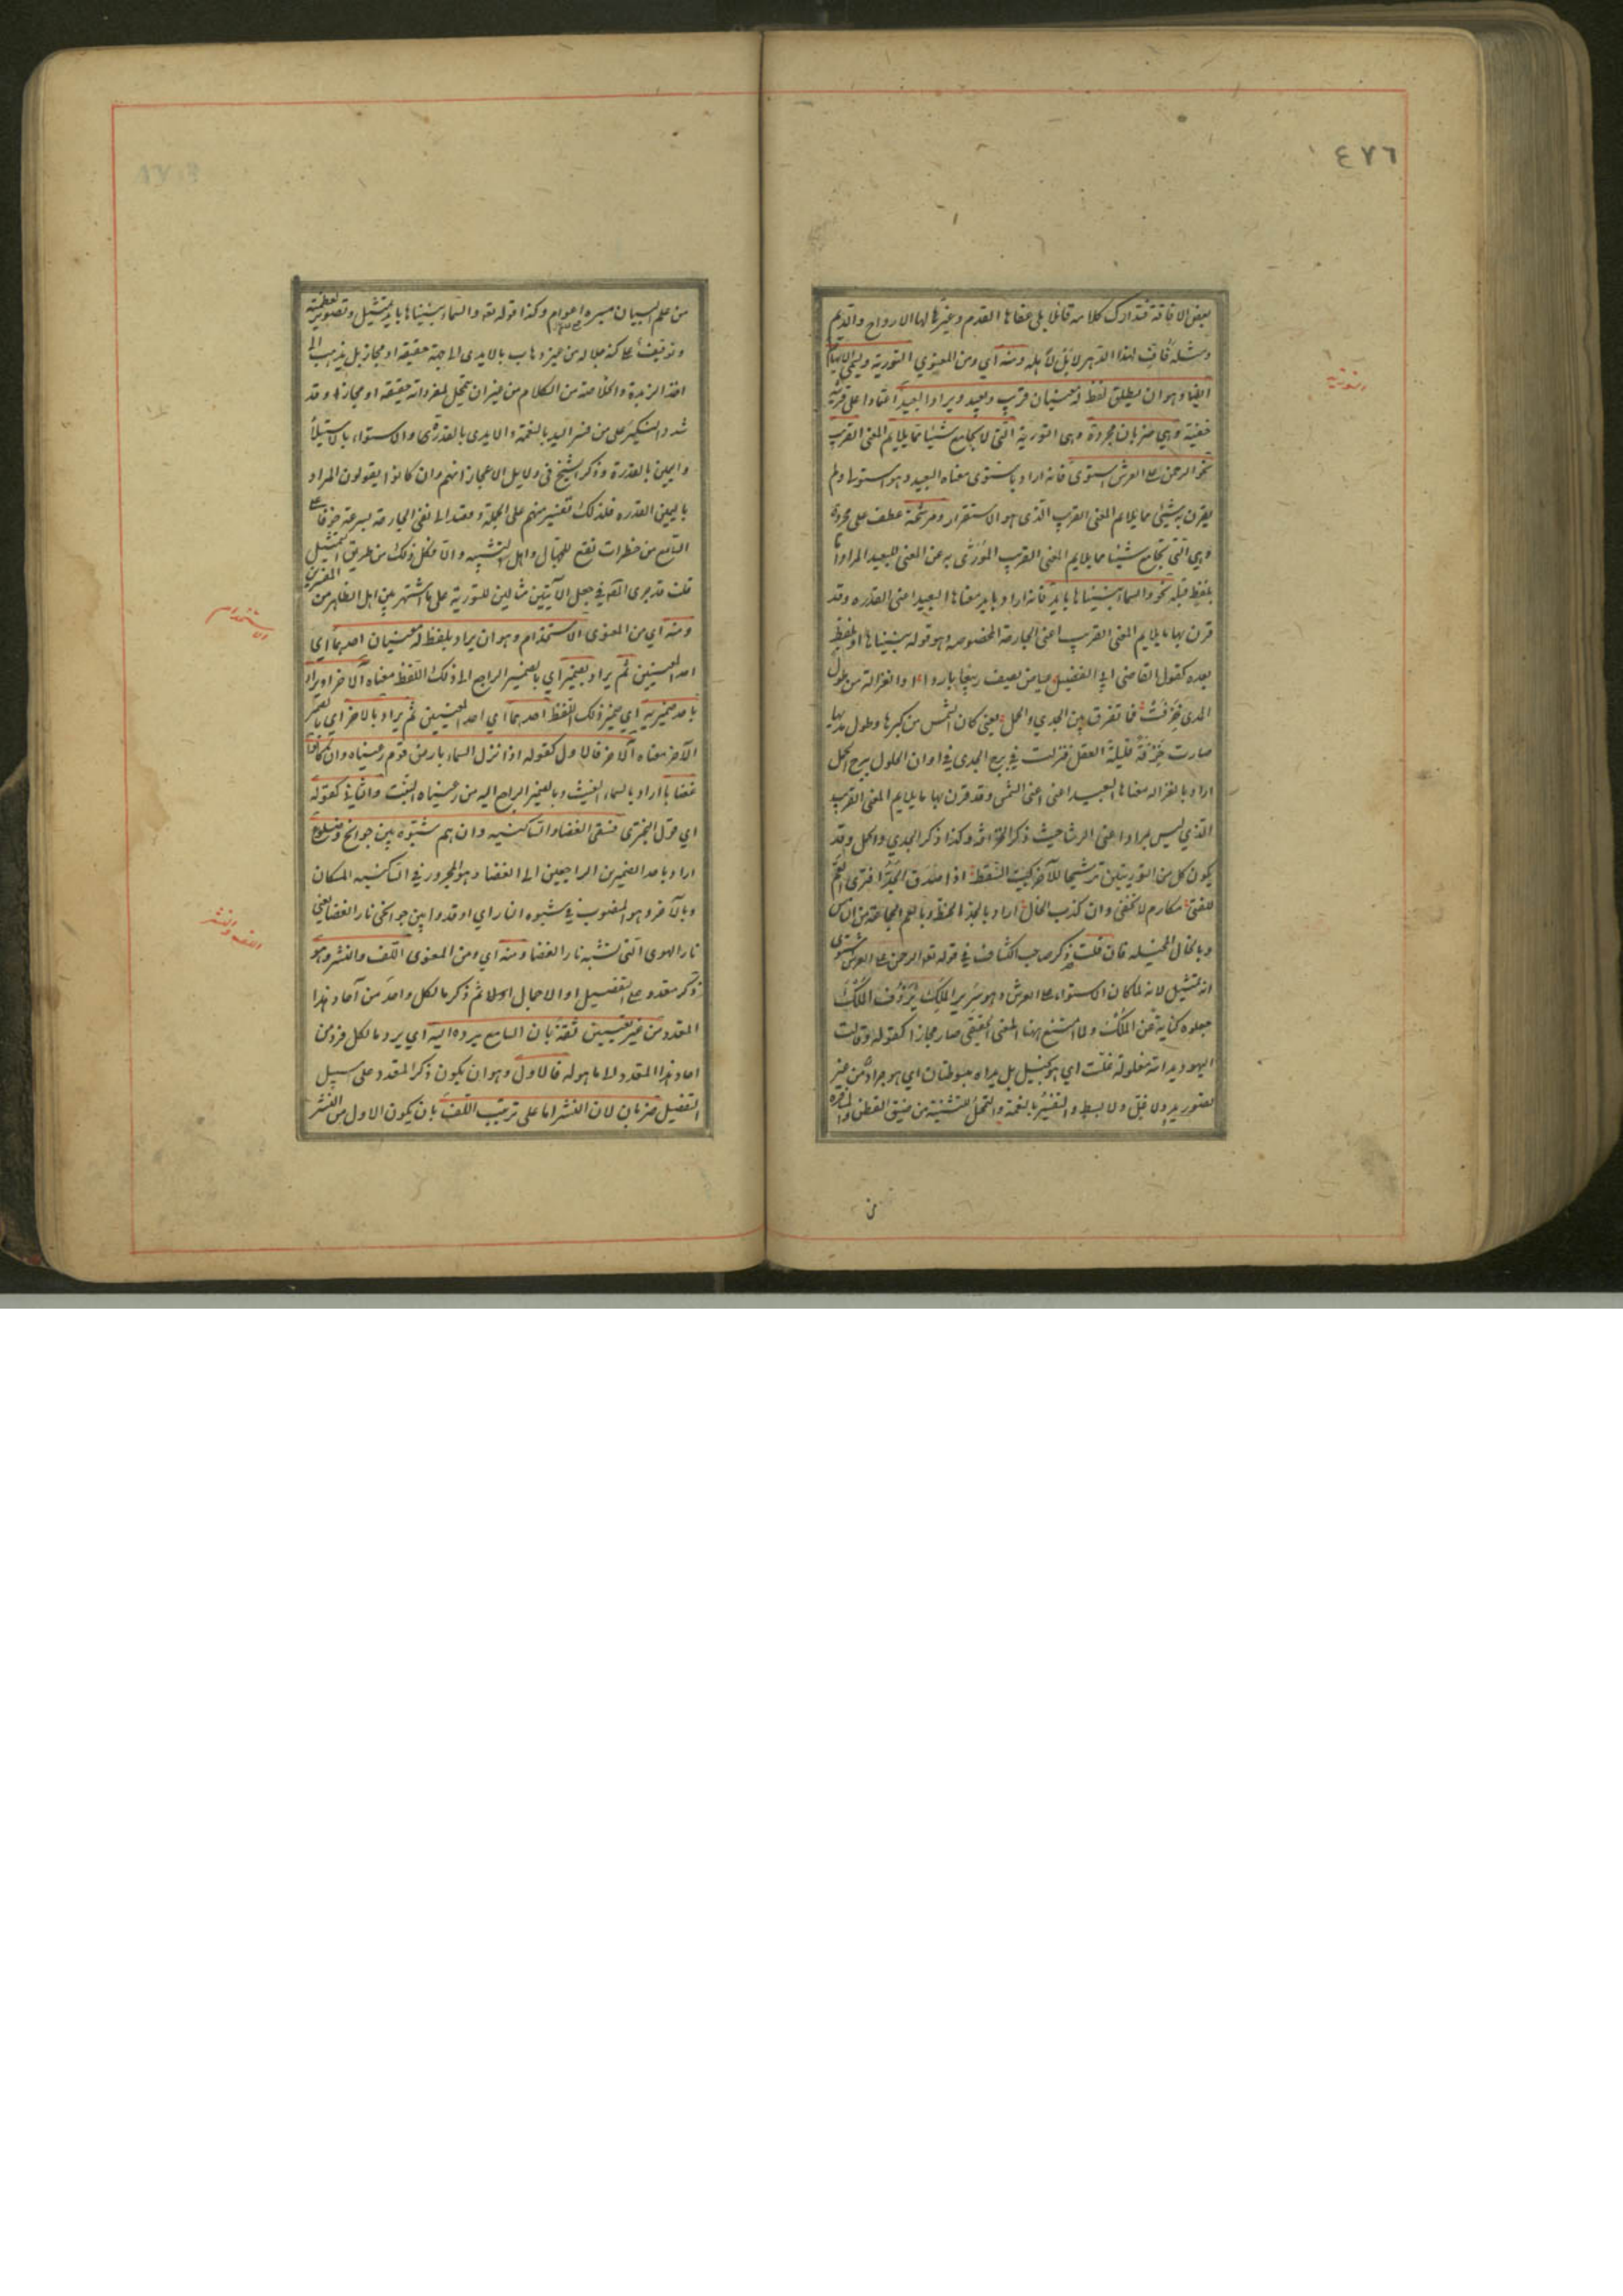 ٤٧٦
بعض الافاقة فتدارك كلامه قائلا بلى عفاها القدم وغيّرها لها الارواح والديم
ومثله فافٍّ لهذا الدهر لا بل لاهله ومنه اي ومن المعنوي التورية ويسمى الايهام
ايضا وهو ان يطلق لفظ له معنيان قريب وبعيد ويراد البعيد اعتمادا على قرينة
خفية وهي ضربان مجردة وهي التورية التي لا تجامع شيئا مما يلايم المعنى القريب
نحو الرحمن على العرش استوى فانه اراد باستوى معناه البعيد وهو استولى ولم
يقرن به شيئ مما يلايم المعنى القريب الذي هو الاستقرار ومرشحة عطف على مجردة
وهي التي تجامع شيئا مما يلايم المعنى القريب المورّى به عن المعنى البعيد المراد اما
بلفظ قبله نحو والسماء بنيناها بايد فانه اراد بايد معناها البعيد اعني القدرة وقد
قرن بها ما يلايم المعنى القريب اعني الجارحة المخصوصة وهو قوله بنيناها او بلفظ
بعده كقول القاضي ابي الفضيل عياض يصف ربيعا باردا او الغزالة من طول
المدى خرفت فما تفرق بين الجدي والحمل يعني كان الشمس من كبرها وطول مدتها
صارت خرفة قليلة العقل فنزلت في برج الجدي في اوان الحلول ببرج الحمل
اراد بالغزالة معناها البعيد اعني الشمس وقد قرن بها ما يلايم المعنى القريب
الذي ليس بمراد اعني الرشا حيث ذكر الخرافة وكذا ذكر الجدي والحمل وقد
يكون كل من التوريتين ترشيحا للآخر كبيت السقط اذا صدق الجد افترى العم
للفتى مكارم لا تخفى وان كذب الخال اراد بالجد الحظ وبالعم الجماعة من الناس
وبالخال المخيلة فان قلت قد ذكر صاحب الكشاف في قوله تعه الرحمن على العرش استوى
انه تمثيل لانه لما كان الاستواء على العرش وهو سرير الملك يردف الملك
جعلوه كناية عن الملك ولما امتنع ههنا المعنى الحقيقي صار مجازا كقوله وقالت
اليهود يد الله مغلولة غلت اي هو بخيل بل يداه مبسوطتان اي هو جواد من غير
تصور يد ولا غل ولا بسط والتفسير بالنعمة والتمحل للتثنية من ضيق العطن والمسافرة
التورية
من علم البيان مسيرة اعوام وكذا قوله تعه والسماء بنيناها بايد تمثيل وتصوير لعظمته
وتوقيف على كنه جلاله من غير ذهاب بالايدي الى جهة حقيقة او مجاز بل يذهب الى
اخذ الزبدة والخلاصة من الكلام من غير ان يتمحل لمفرداته حقيقة او مجازا وقد
شدد النكير على من فسر اليد بالنعمة والايدي بالقدرة والاستواء بالاستيلاء
واليمين بالقدرة وذكر الشيخ في دلايل الاعجاز انهم وان كانوا يقولون المراد
باليمين القدرة فذلك تفسير منهم على الجملة وقصد الى نفي الجارحة بسرعة خوفا على
السامع من خطرات تقع للجهال واهل التشبيه والا فكل ذلك من طريق التمثيل
قلت قد جرى المص في جعل الآيتين مثالين للتورية على ما اشتهر بين اهل الظاهر من المفسرين
ومنه اي من المعنوي الاستخدام وهو ان يراد بلفظ له معنيان احدهما اي
احد المعنيين ثم يراد بضميره اي بالضمير الراجع الى ذلك اللفظ معناه الآخر او يراد
باحد ضميريه اي ضميري ذلك اللفظ احدهما اي احد المعنيين ثم يراد بالاخر اي بالضمير
الآخر معناه الآخر فالاول كقوله اذا نزل السماء بارض قوم رعيناه وان كانوا
غضابا اراد بالسماء الغيث وبالضمير الراجع اليه من رعيناه النبت والثاني كقوله
اي قول البحتري فسقى الغضا والساكنيه وان هم شبّوه بين جوانح وضلوع
اراد باحد الضميرين الراجعين الى الغضا وهو المجرور في الساكنيه المكان
وبالآخر وهو المنصوب في شبوه النار اي اوقدوا بين جوانحي نار الغضا يعني
نار الهوى التي تشبه نار الغضا ومنه اي ومن المعنوي اللف والنشر وهو
ذكر متعدد على التفصيل او الاجمال اولا ثم ذكر ما لكل واحد من آحاد هذا
المتعدد من غير تعيين ثقة بان السامع يرده اليه اي يرد ما لكل فرد من
احاد هذا المتعدد الى ما هو له فالاول وهو ان يكون ذكر المتعدد على سبيل
التفصيل ضربان لان النشر اما على ترتيب اللف بان يكون الاول من النشر
الاستخدام
اللف والنشر